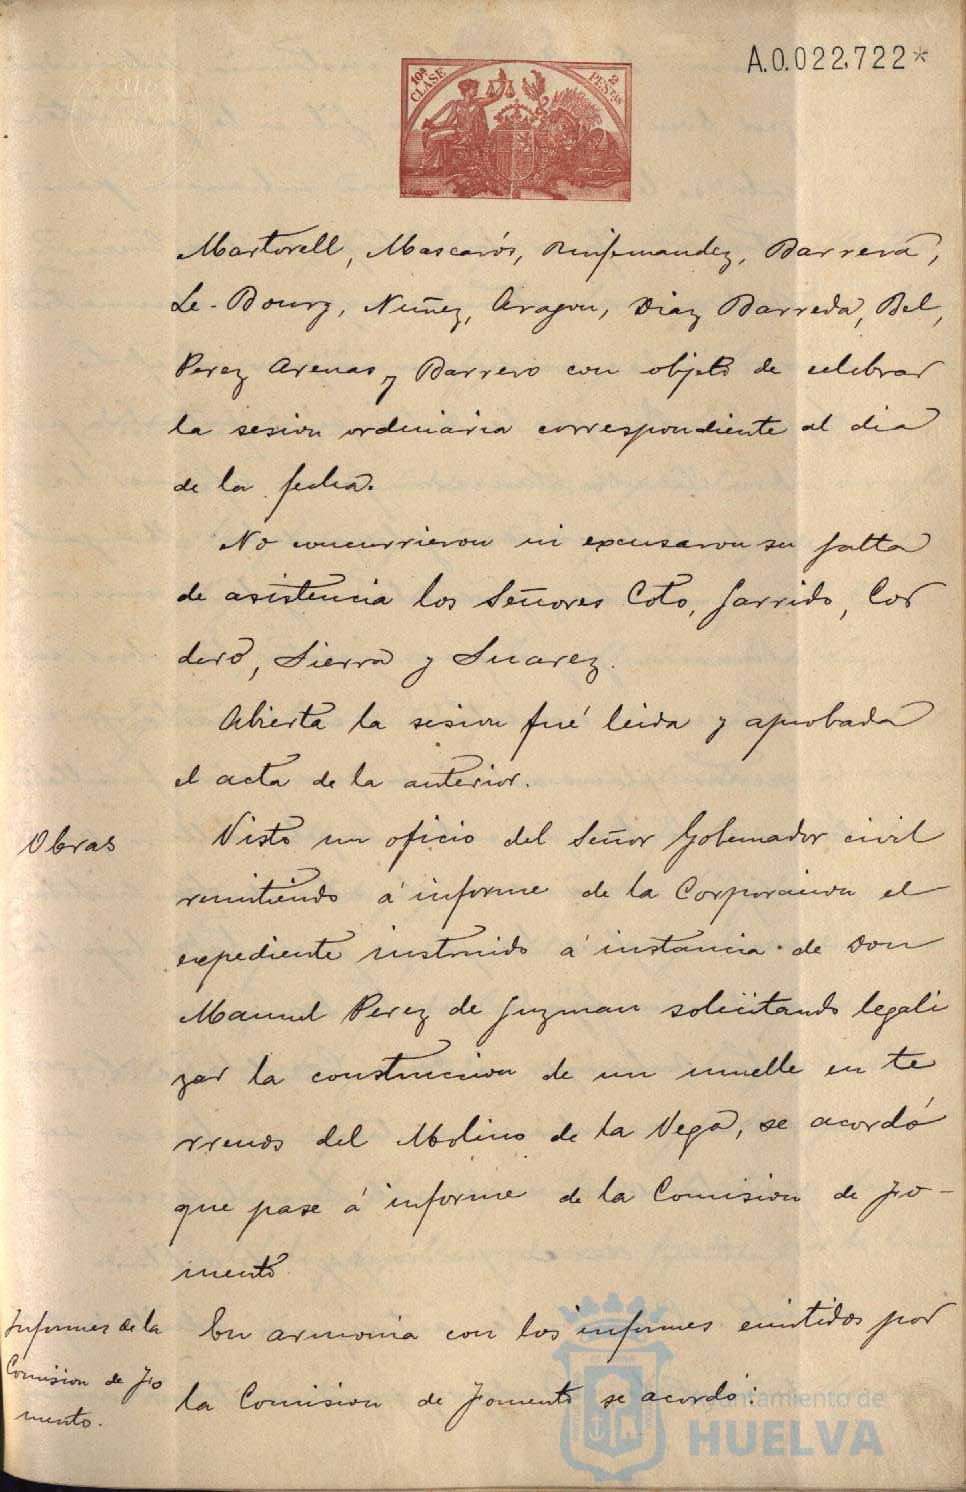 A.0.022,722*
10ª CLASE
2 PESTAS
Martorell, Mascarós, Barrera,
Le-Bourg, Nuñez, Aragon, Diaz Barreda, Bel,
Perez Arenas y Barrero con objeto de celebrar
la sesion ordinaria correspondiente al dia
de la fecha.
No concurrieron ni excusaron su falta
de asistencia los Señores Coto, Garrido, Cor
dero, Sierra y Suarez.
Abierta la sesion fué leida y aprobada
el acta de la anterior.
Obras
Visto un oficio del Señor Gobernador civil
remitiendo á informe de la Corporacion el
expediente instruido á instancia de Don
Manuel Perez de Guzman solicitando legali
zar la construccion de un muelle en te
rrenos del Molino de la Vega, se acordó
que pase á informe de la Comision de Fo-
mento
Informes de la
Comision de Fo
mento.
En armonia con los informes emitidos por
la Comision de Fomento se acordó:
Ayuntamiento de
HUELVA